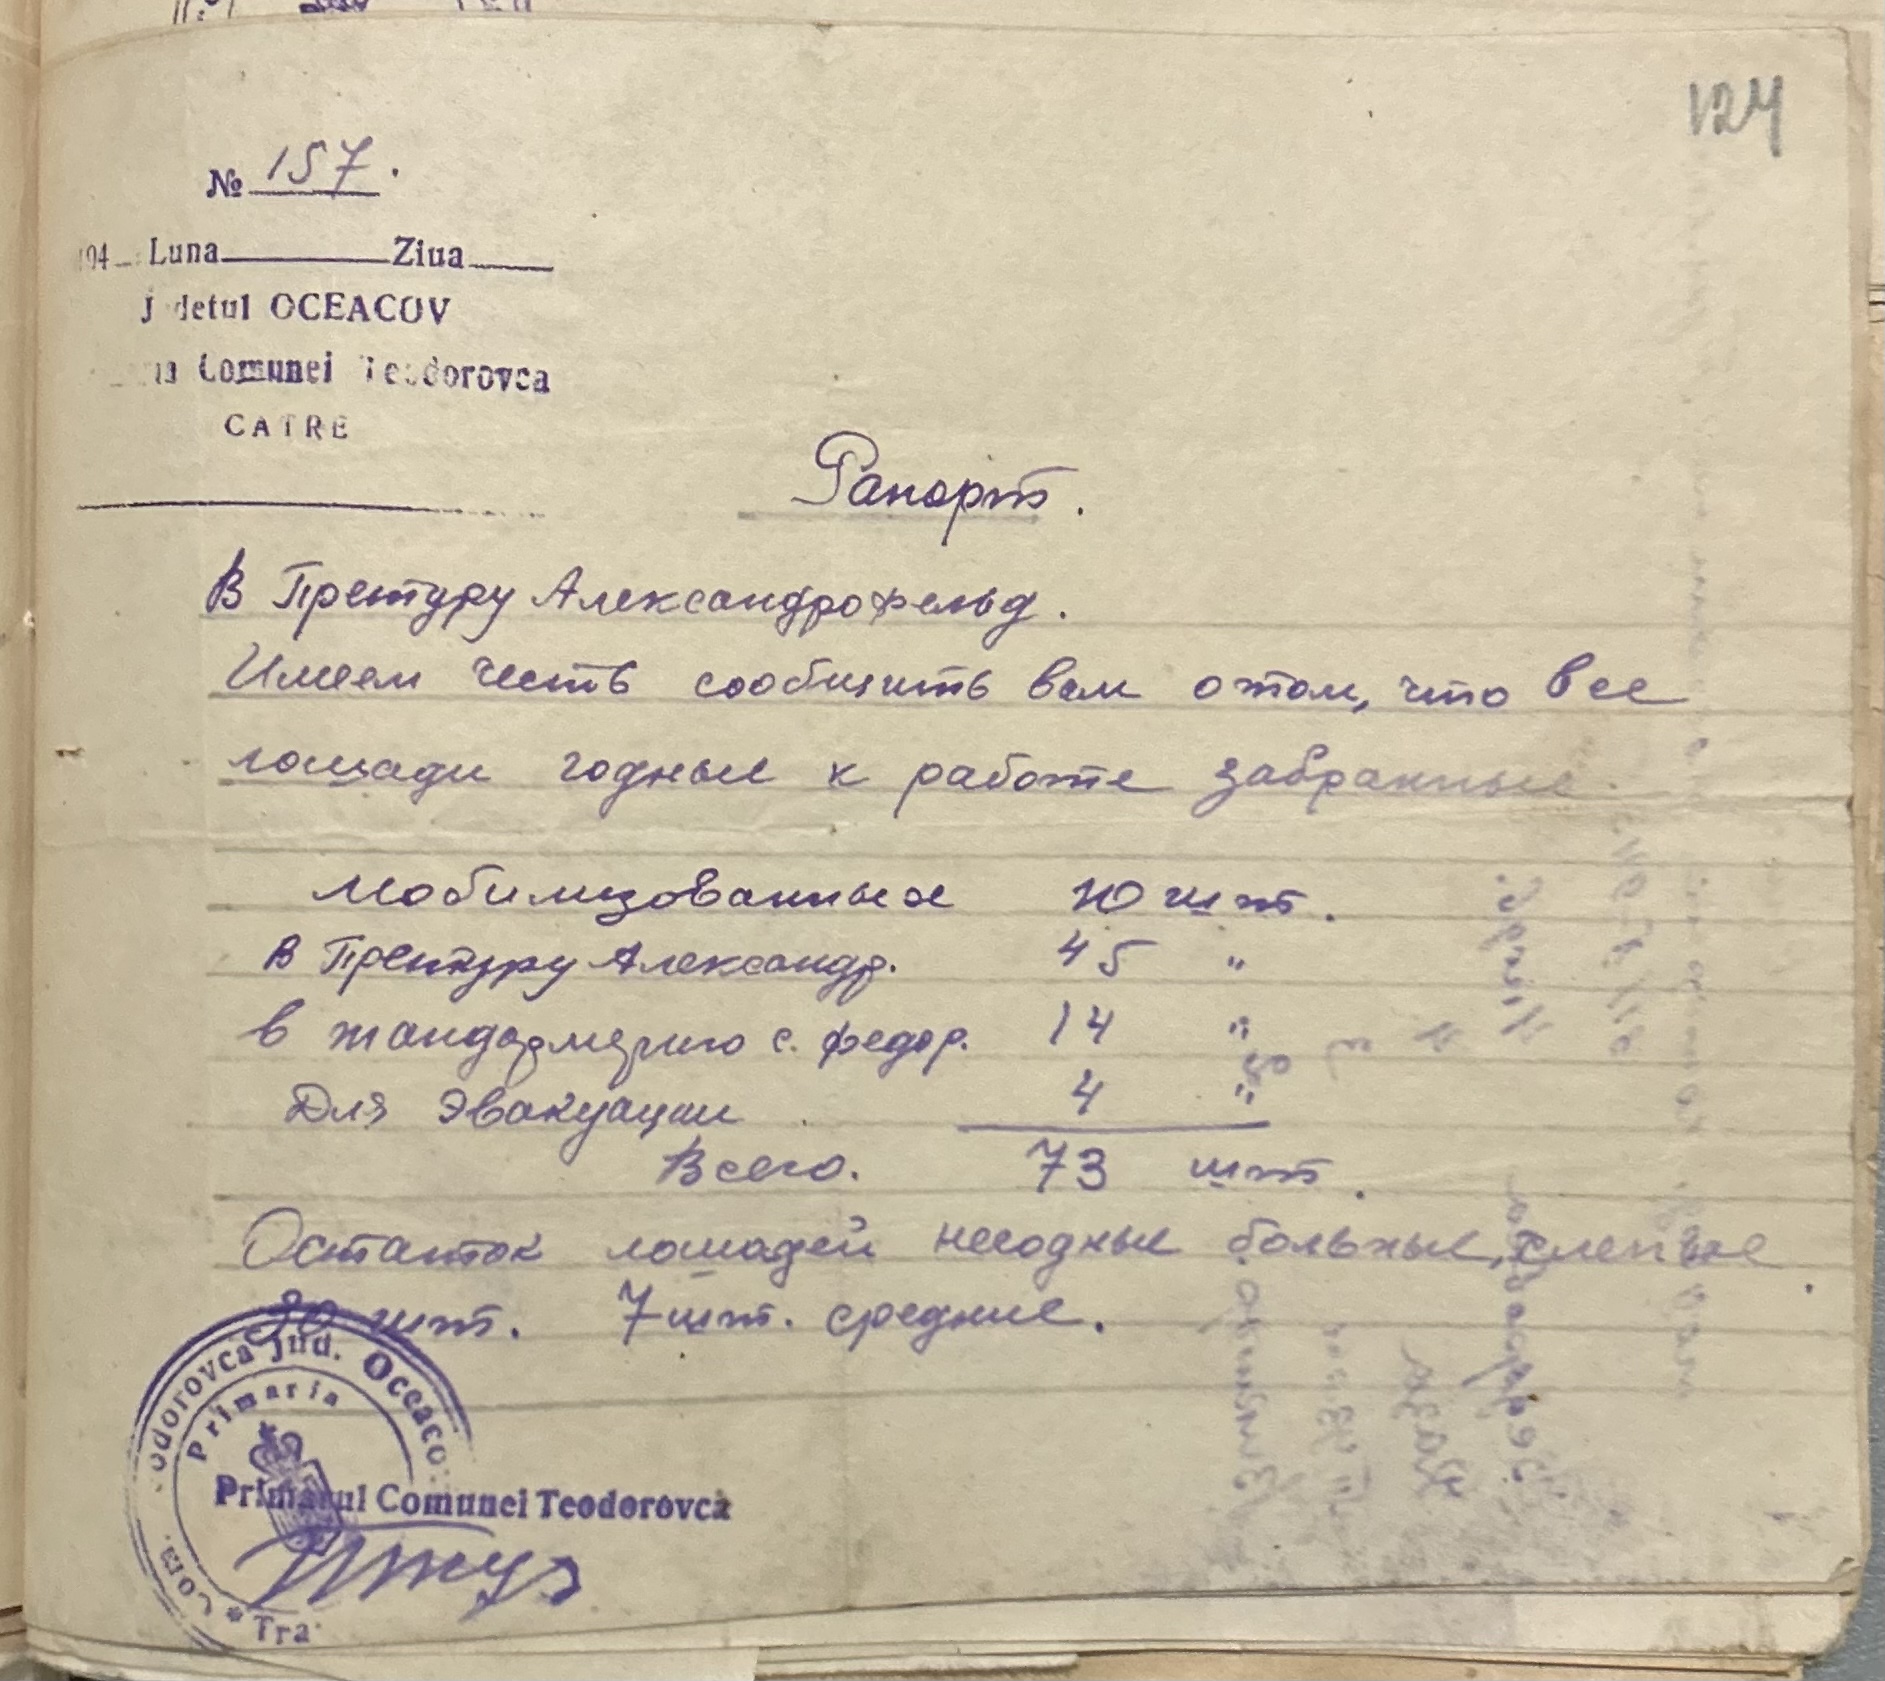 124
№ 157.
194 Luna Ziua
Judetul OCEACOV
Comunei Teodorovca
CATRE
Рапорт.
В Претуру Александрофельд.
Имеем честь сообщить вам о том, что все
лошади годные к работе забранные
мобилизованные 10 шт.
в Претуру Александр. 45 "
в жандармерию с. федор. 14 "
Для эвакуации 4 "
Всего. 73 шт.
Остаток лошадей негодные больные, слепые
20 шт. 7 шт. средние.
odorovca Jud. Oceaco
Primaria
Primarul Comunei Teodorovca
Com.
* Tra